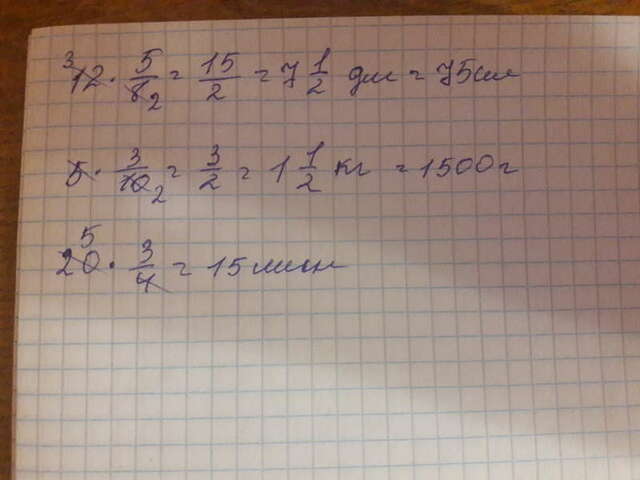 12 · 5/8 = 15/2 = 7 1/2 дм = 75 см
5 · 3/10 = 3/2 = 1 1/2 кг = 1500 г
20 · 3/4 = 15 мин